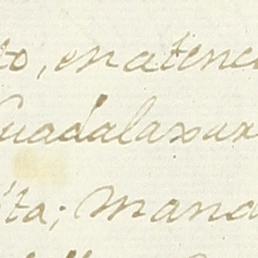 to, en atenci
Guadalaxar
ta; manda